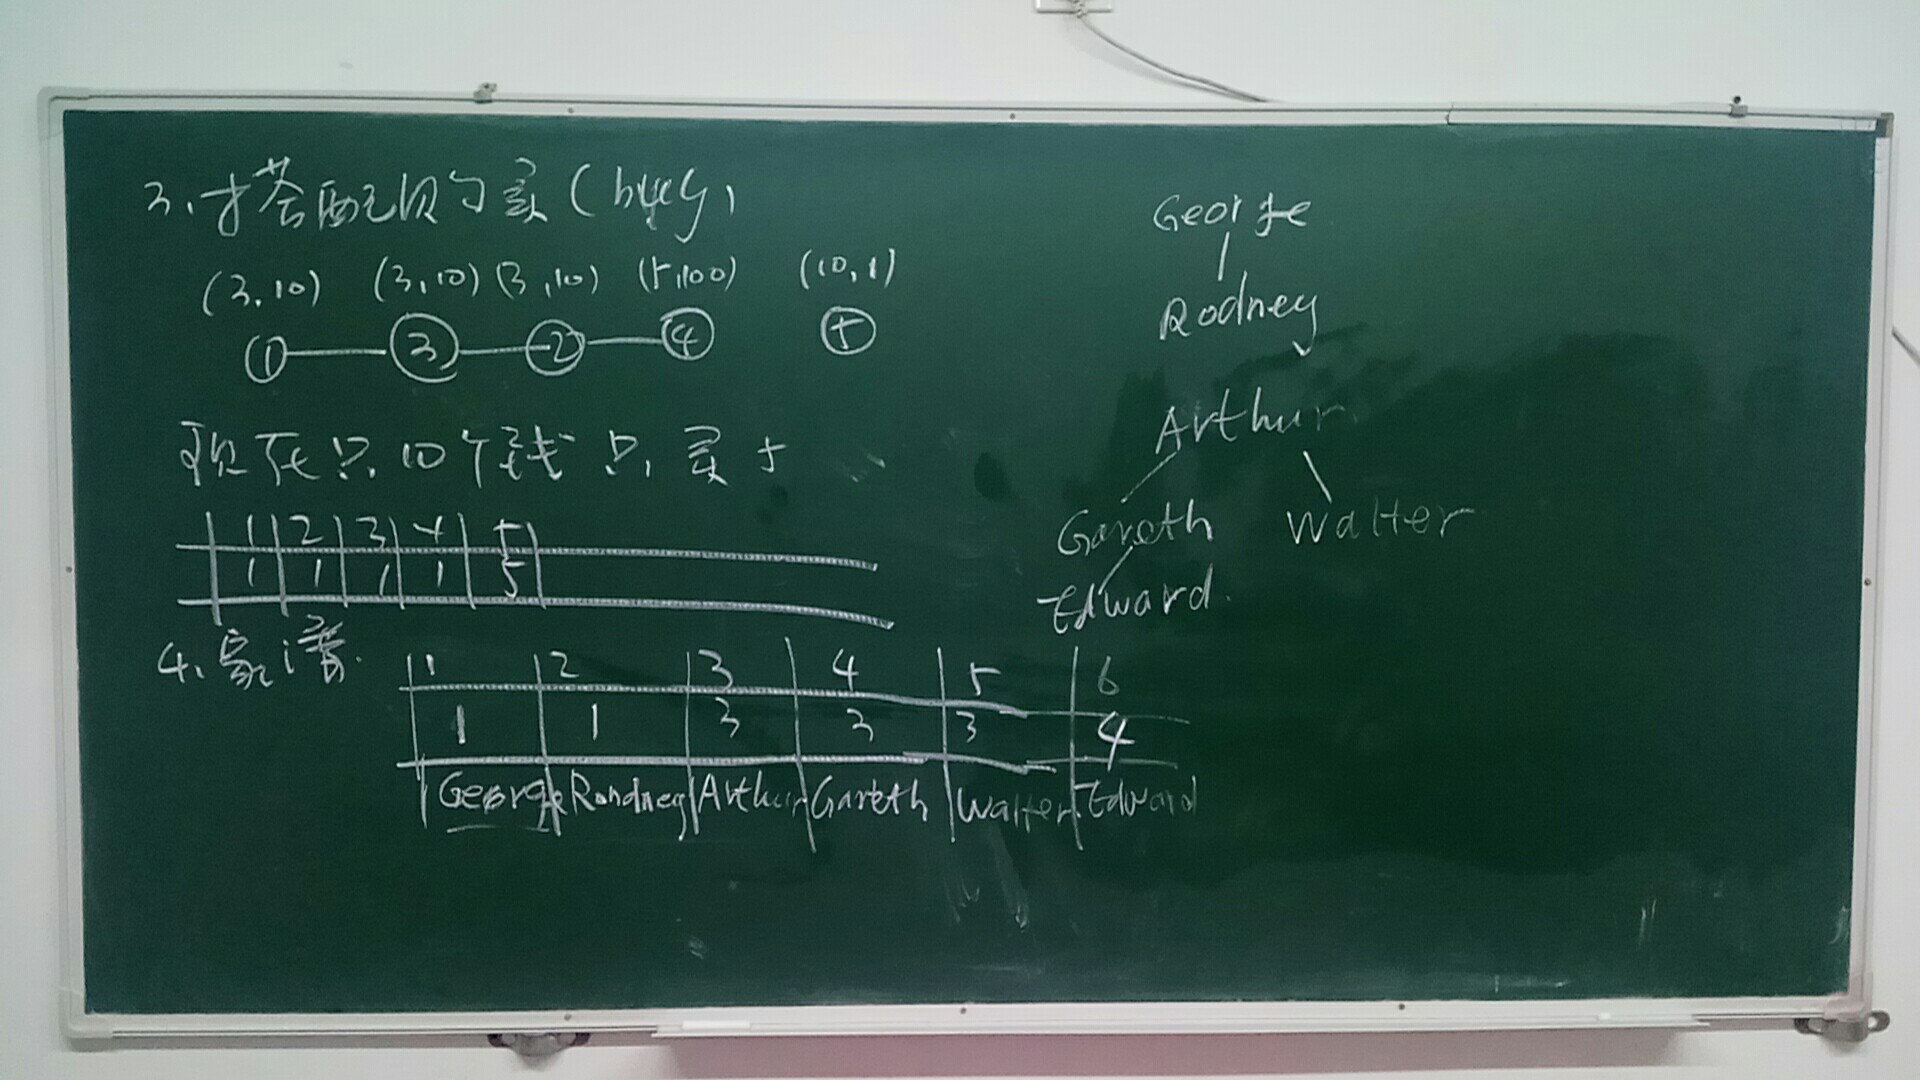 3. 搭配购买(buy)
(3,10) (3,10) (3,10) (5,100) (10,1)
① ③ ② ④ ⑤
现在只10个钱只买5
1 2 3 4 5
1 1 1 1 5
4. 家谱.
1 2 3 4 5 6
1 1 3 3 3 4
George Rondney Arthur Gareth Walter Edward
George
Rodney
Arthur
Gareth Walter
Edward.